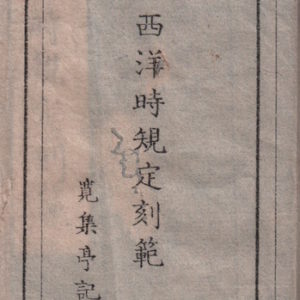 西洋時規定刻範
寛集亭記